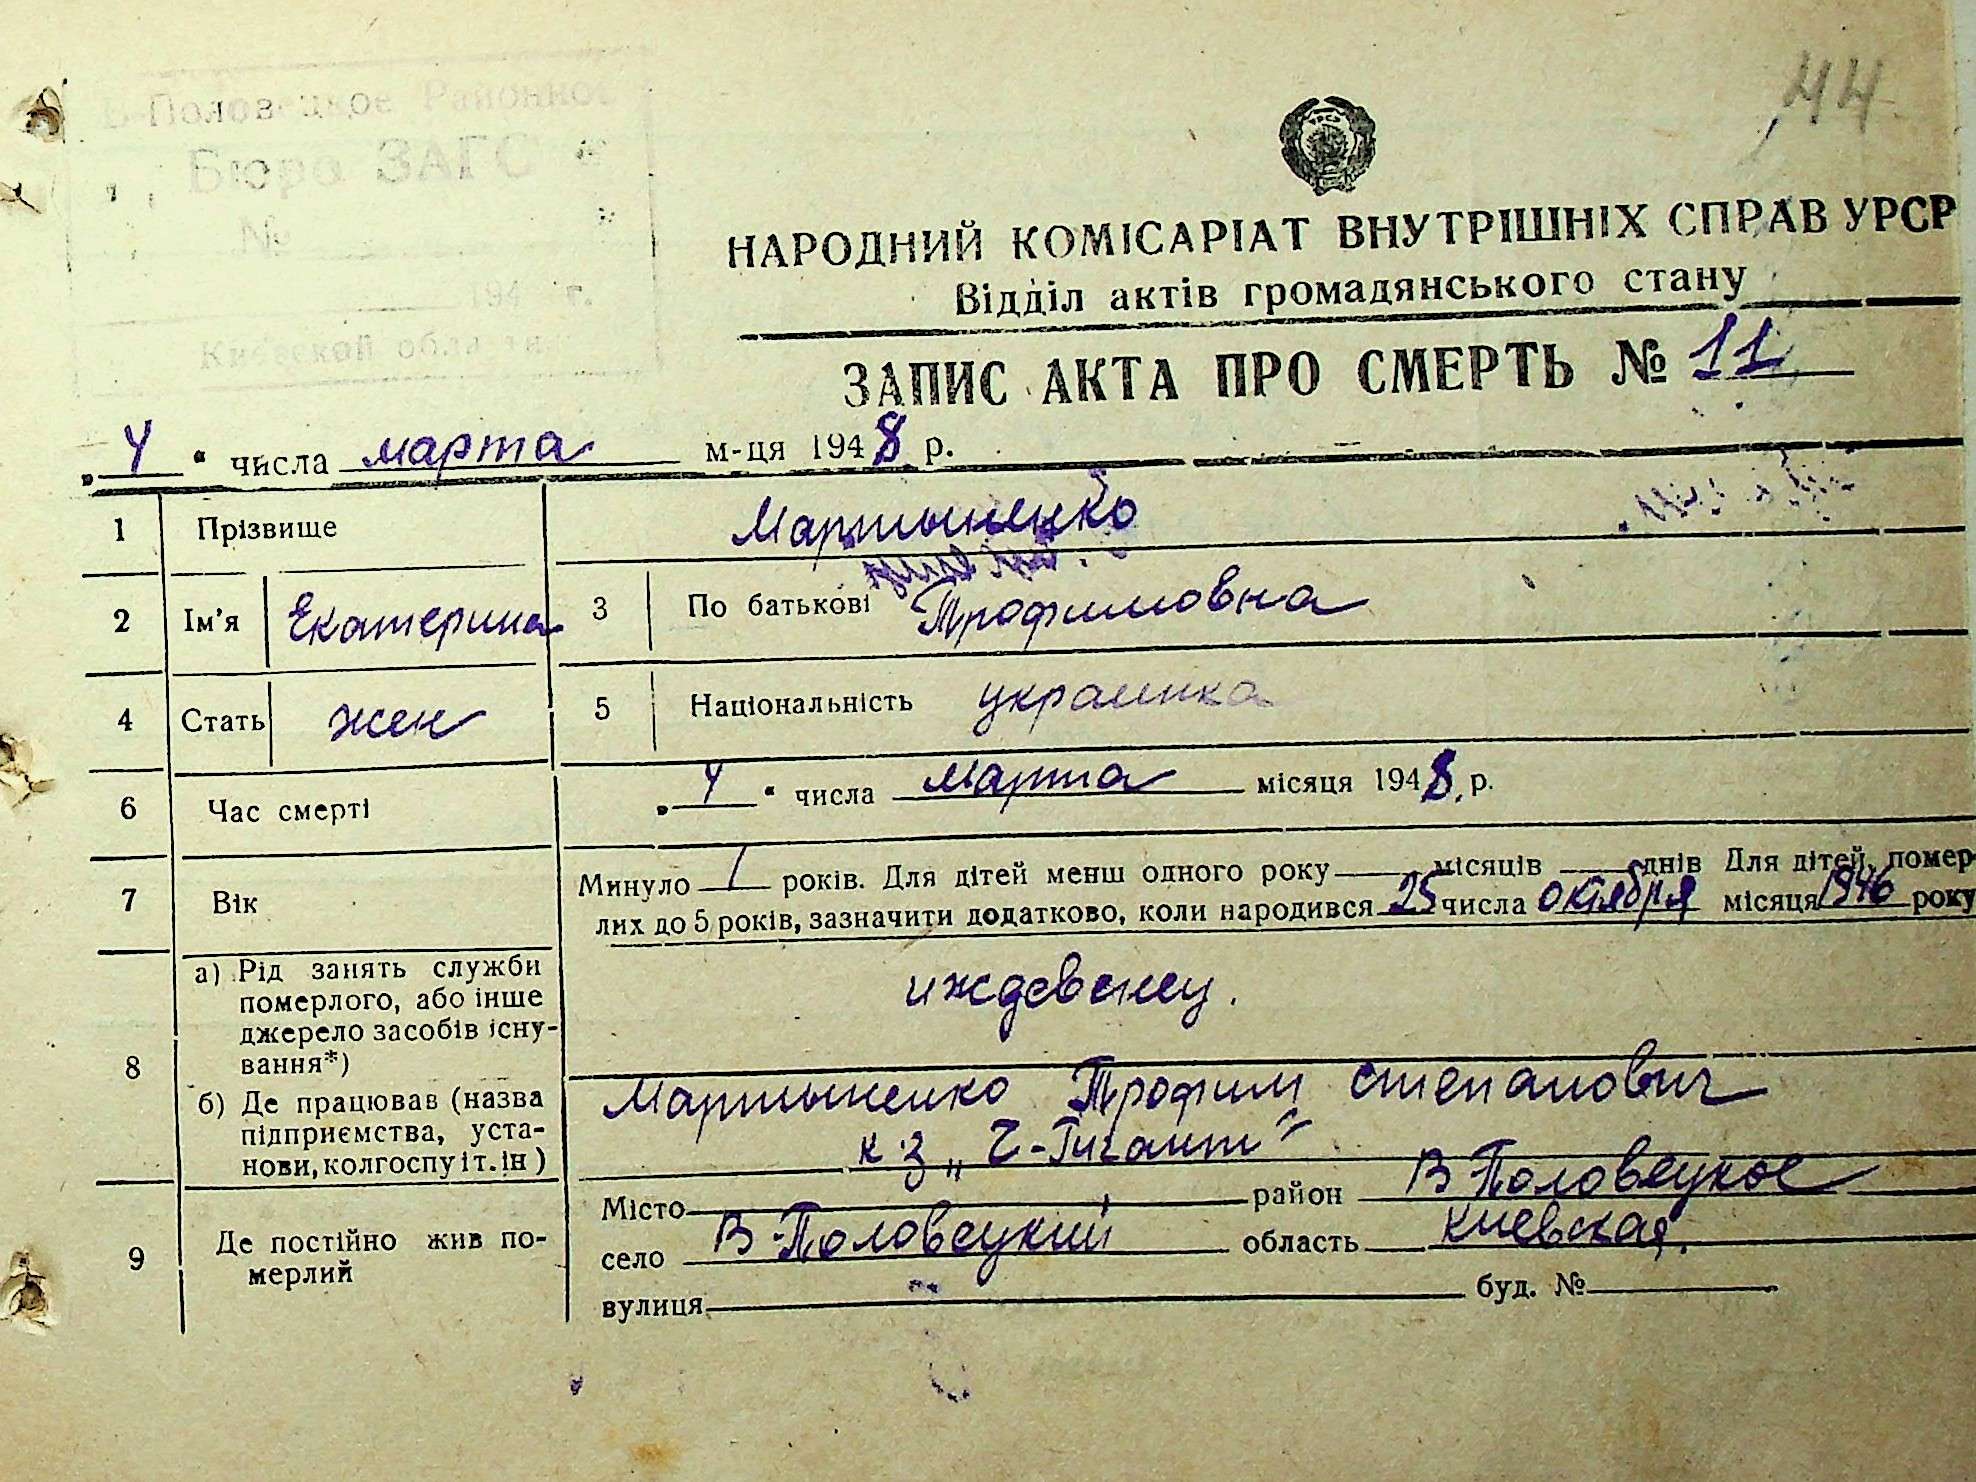 44
В-Половецкое Районное
Бюро ЗАГС
№
194 г.
Киевской области
НАРОДНИЙ КОМІСАРІАТ ВНУТРІШНІХ СПРАВ УРСР
Відділ актів громадянського стану
ЗАПИС АКТА ПРО СМЕРТЬ № 11
„ 4 “ числа марта м-ця 1948 р.
1 Прізвище Мартыненко
2 Ім'я Екатерина 3 По батькові Трофимовна
4 Стать жен 5 Національність украинка
6 Час смерті „ 4 “ числа марта місяця 1948. р.
7 Вік Минуло 1 років. Для дітей менш одного року місяців днів Для дітей, помер-
лих до 5 років, зазначити додатково, коли народився 25 числа октября місяця 1946 року
8 а) Рід занять служби
померлого, або інше
джерело засобів існу-
вання*)
иждевенец.
б) Де працював (назва
підприємства, уста-
нови, колгоспу і т. ін)
Мартыненко Трофим Степанович
к-з „Гигант“
9 Де постійно жив по-
мерлий
Місто район В Половецкое
село В-Половецкий область Киевская.
вулиця буд. №